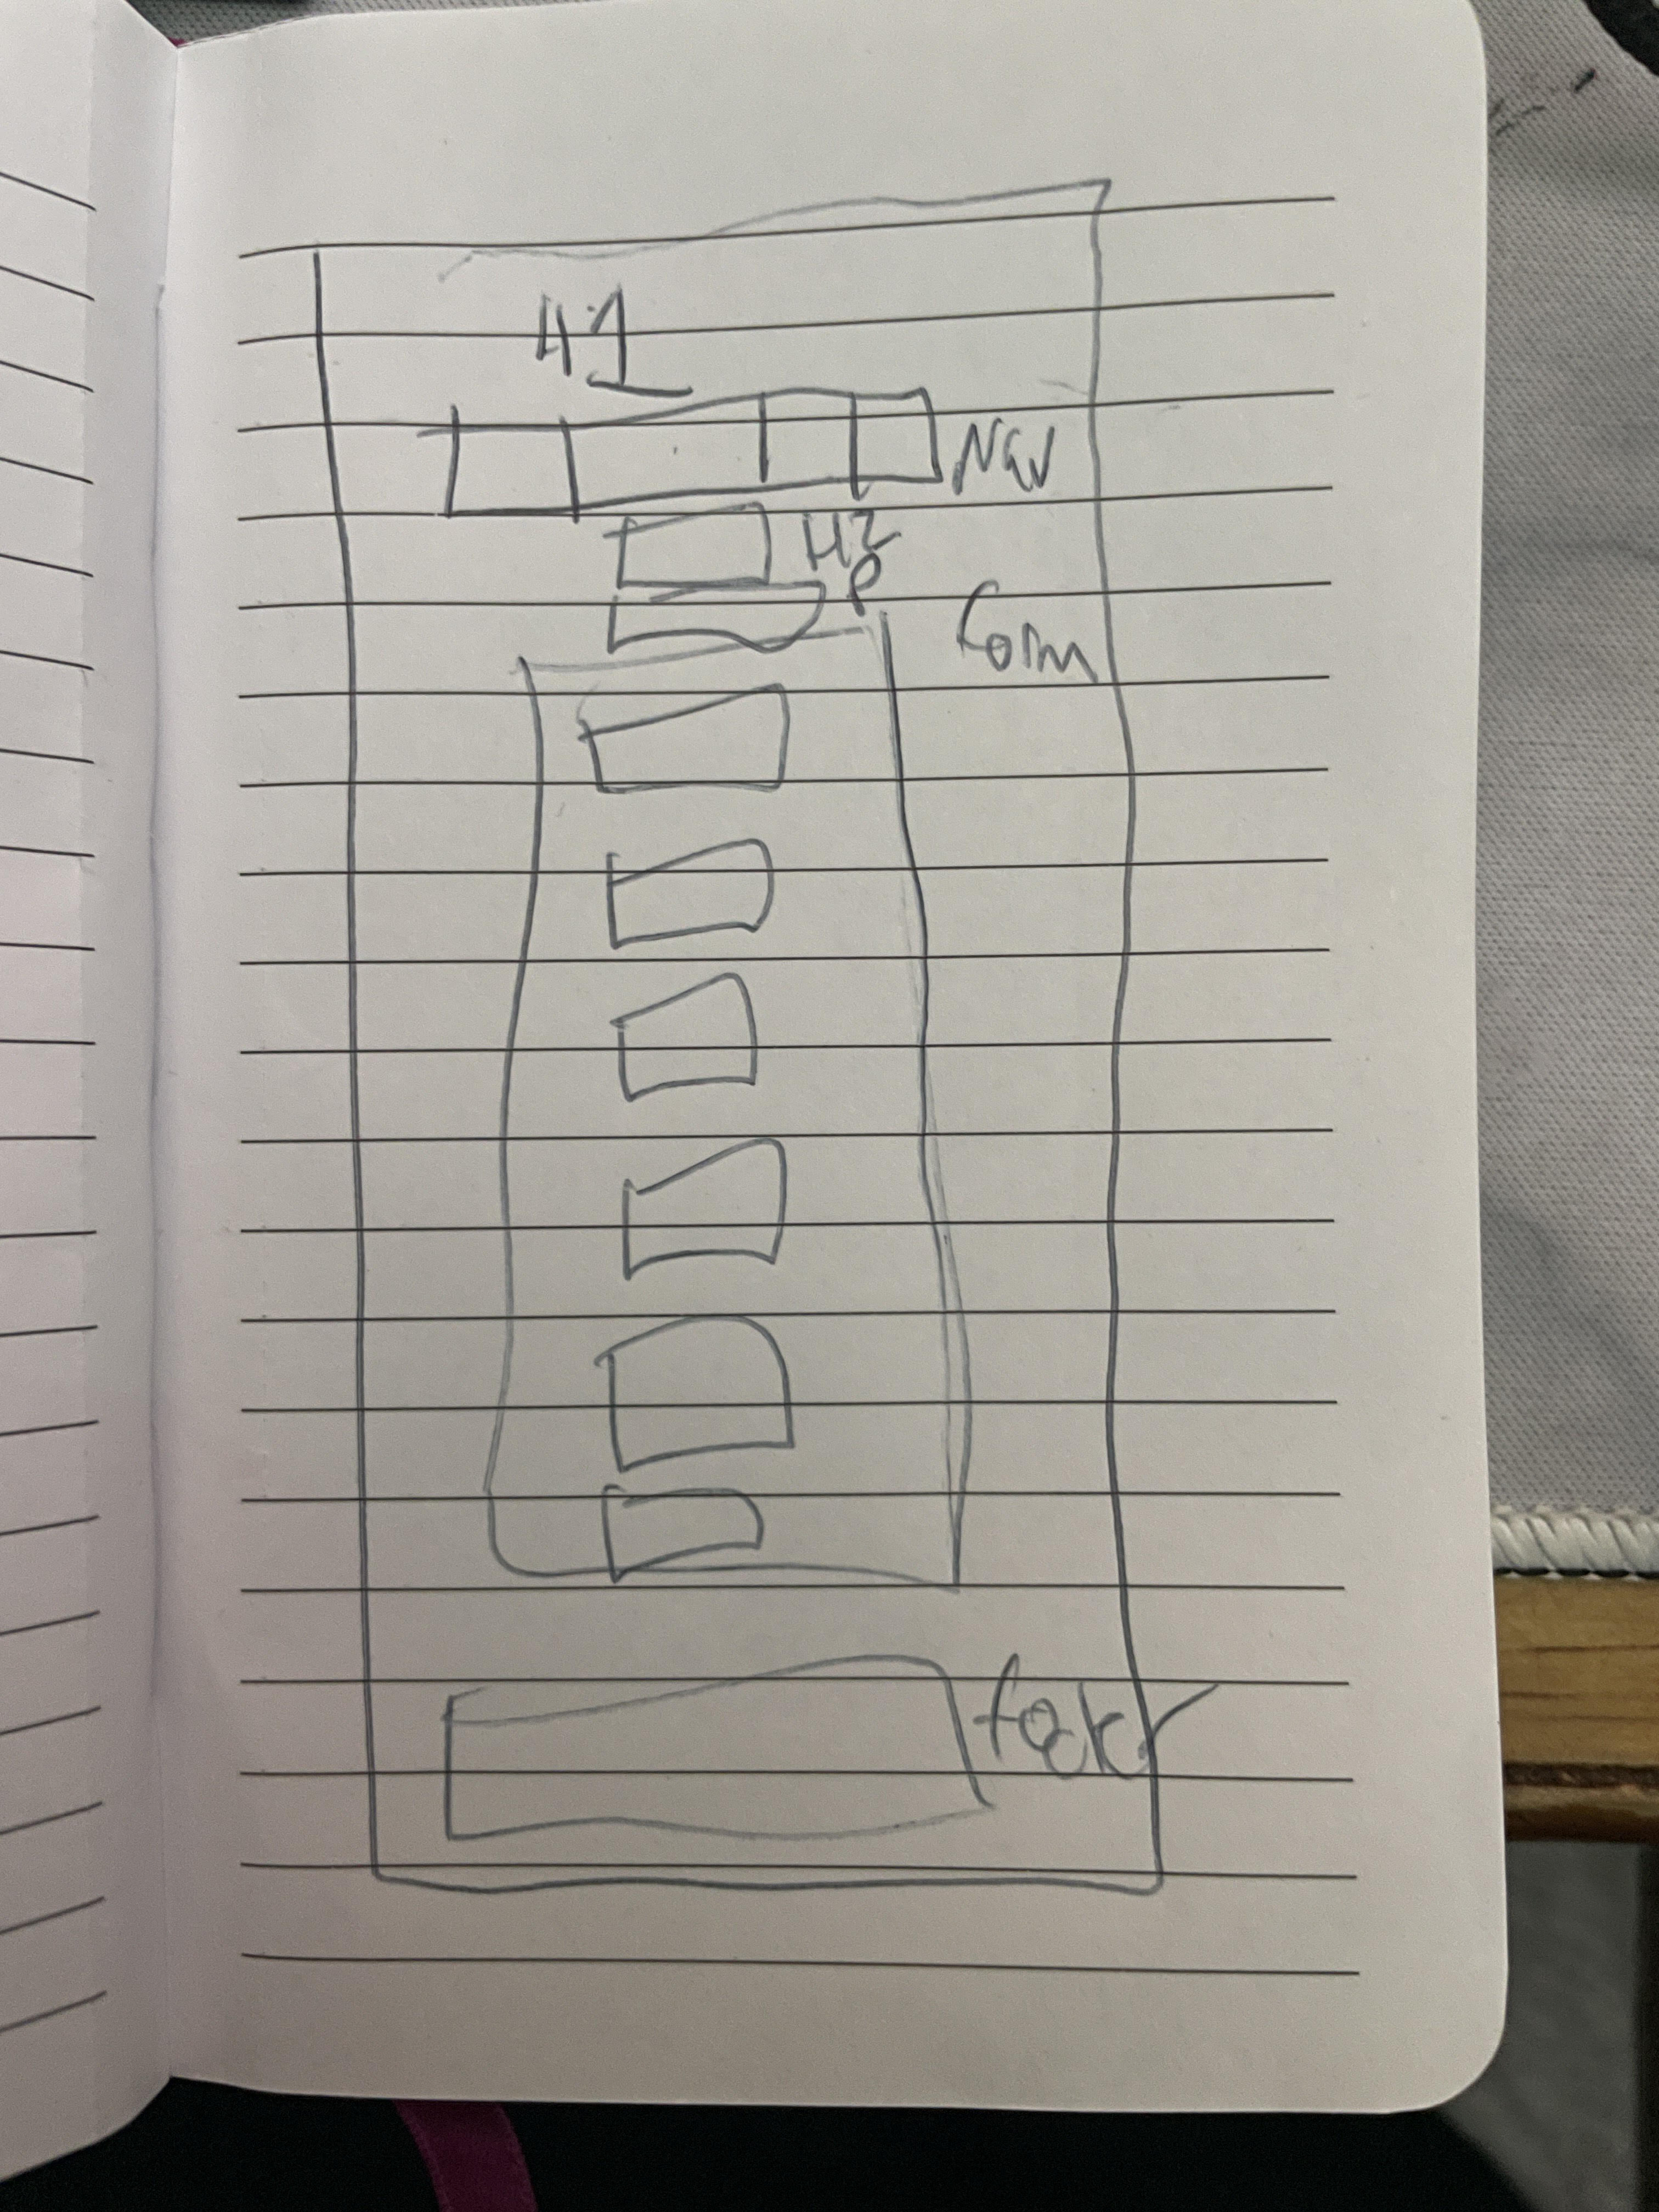 H1
Nav
H2
P
Form
footer